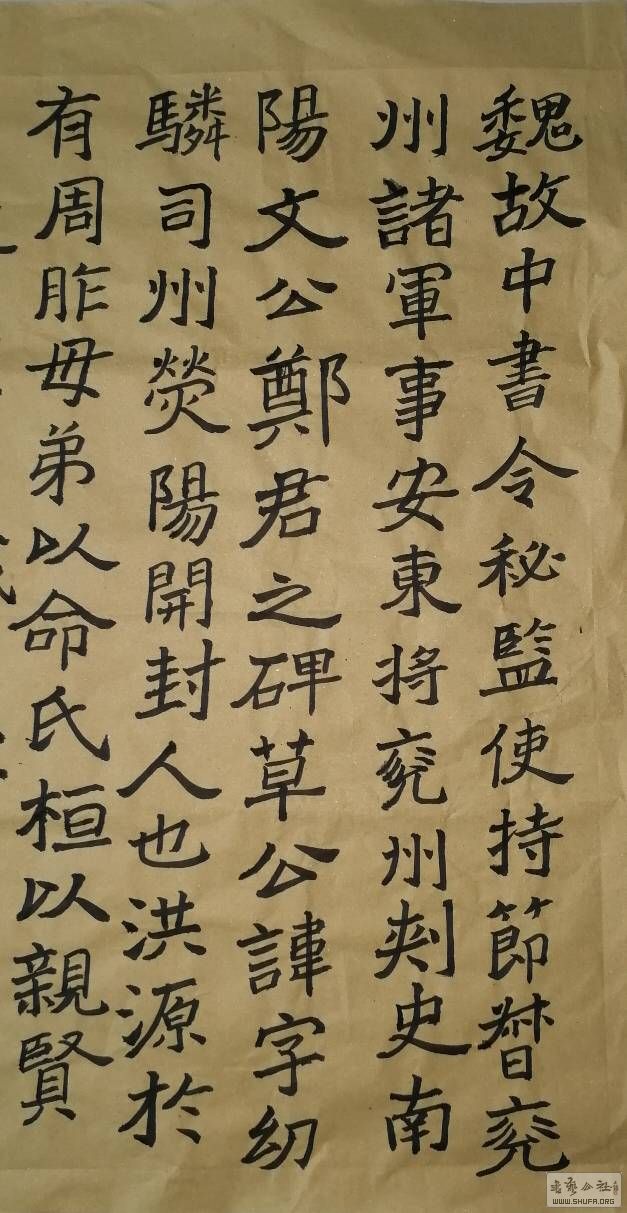 魏故中書令秘監使持節督兗
州諸軍事安東将兗州刾史南
陽文公鄭君之碑草公諱字幼
驎司州熒陽開封人也洪源於
有周胙母弟以命氏桓以親賢
書艺公社
WWW.SHUFA.ORG